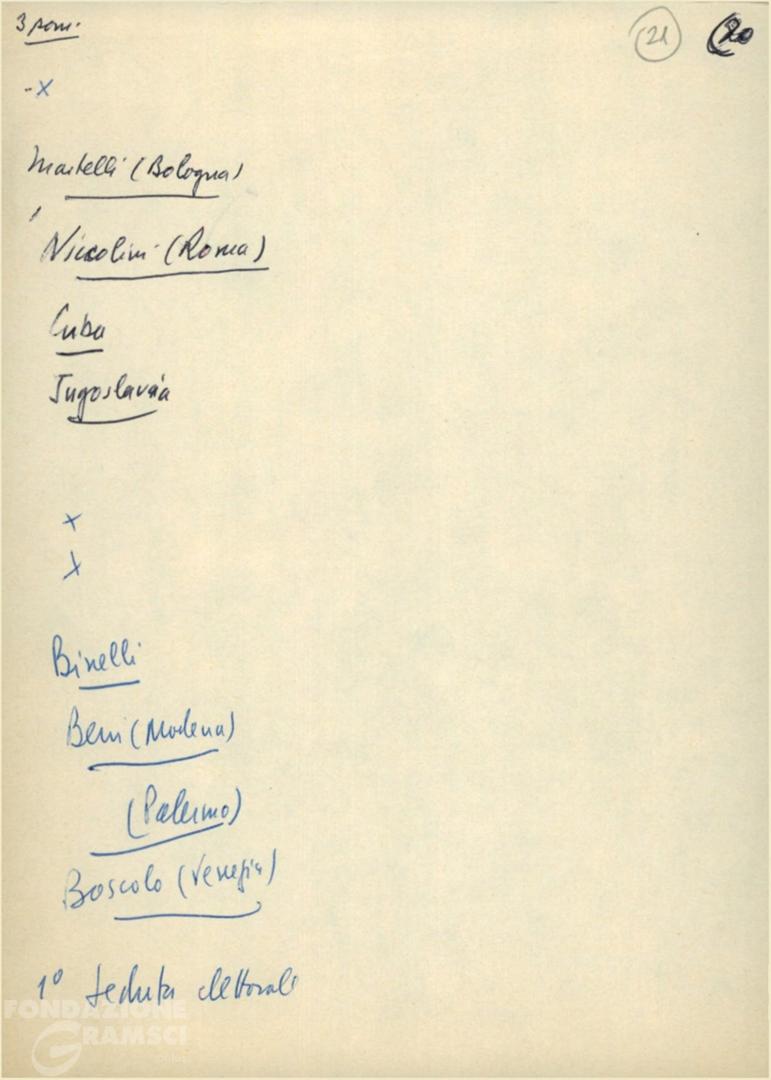 3 pom. (21) (20
- x
Martelli (Bologna)
Niccolini (Roma)
Cuba
Jugoslavia
x
x
Binelli
Beni (Modena)
(Palermo)
Boscolo (Venezia)
1° seduta elettorali
FONDAZIONE
GRAMSCI